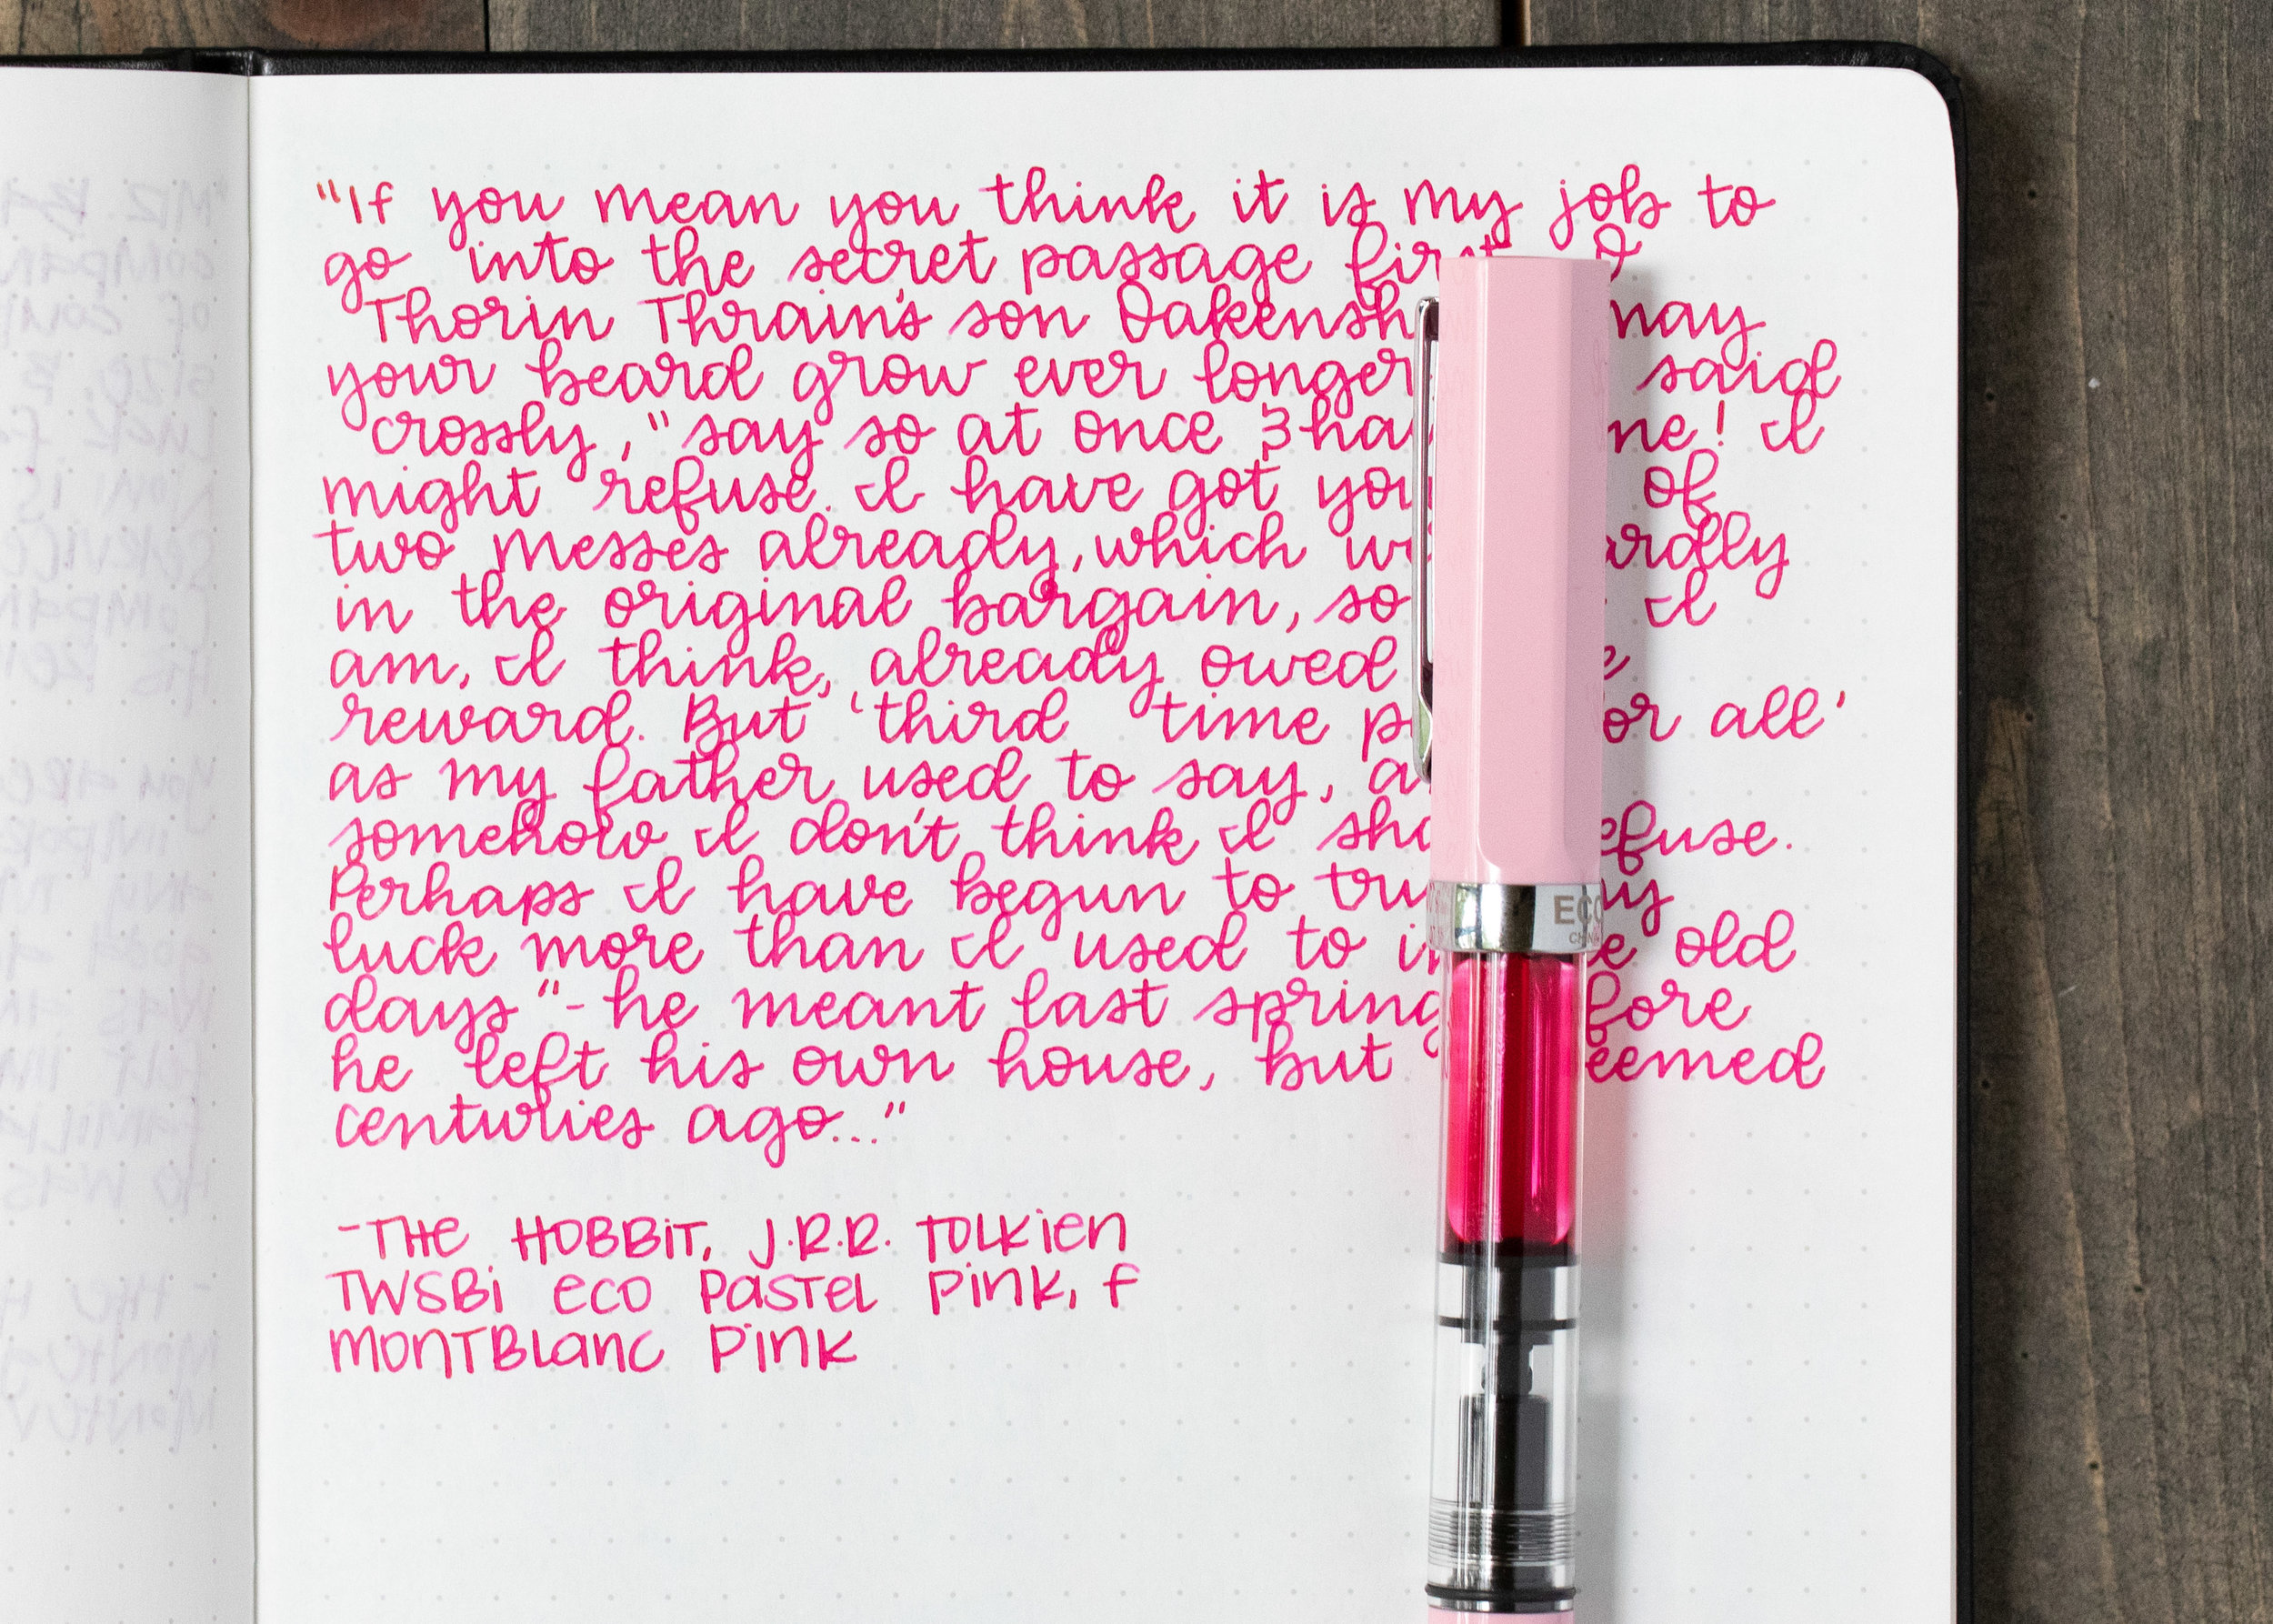 "If you mean you think it is my job to
go into the secret passage first, O
Thorin Thrain's son Oakensh may
your beard grow ever longer said
crossly," say so at once & ha ne! I
might refuse. I have got you of
two messes already, which we ardly
in the original bargain, so I
am, I think, already owed
reward. But 'third time p or all'
as my father used to say, a
somehow I don't think I sha efuse.
Perhaps I have begun to tru my
luck more than I used to in e old
days"- he meant last spring fore
he left his own house, but eemed
centuries ago..."
-THE HOBBIT, J.R.R. TOLKIEN
TWSBI ECO PASTEL PINK, F
MONTBLANC PINK
ECO